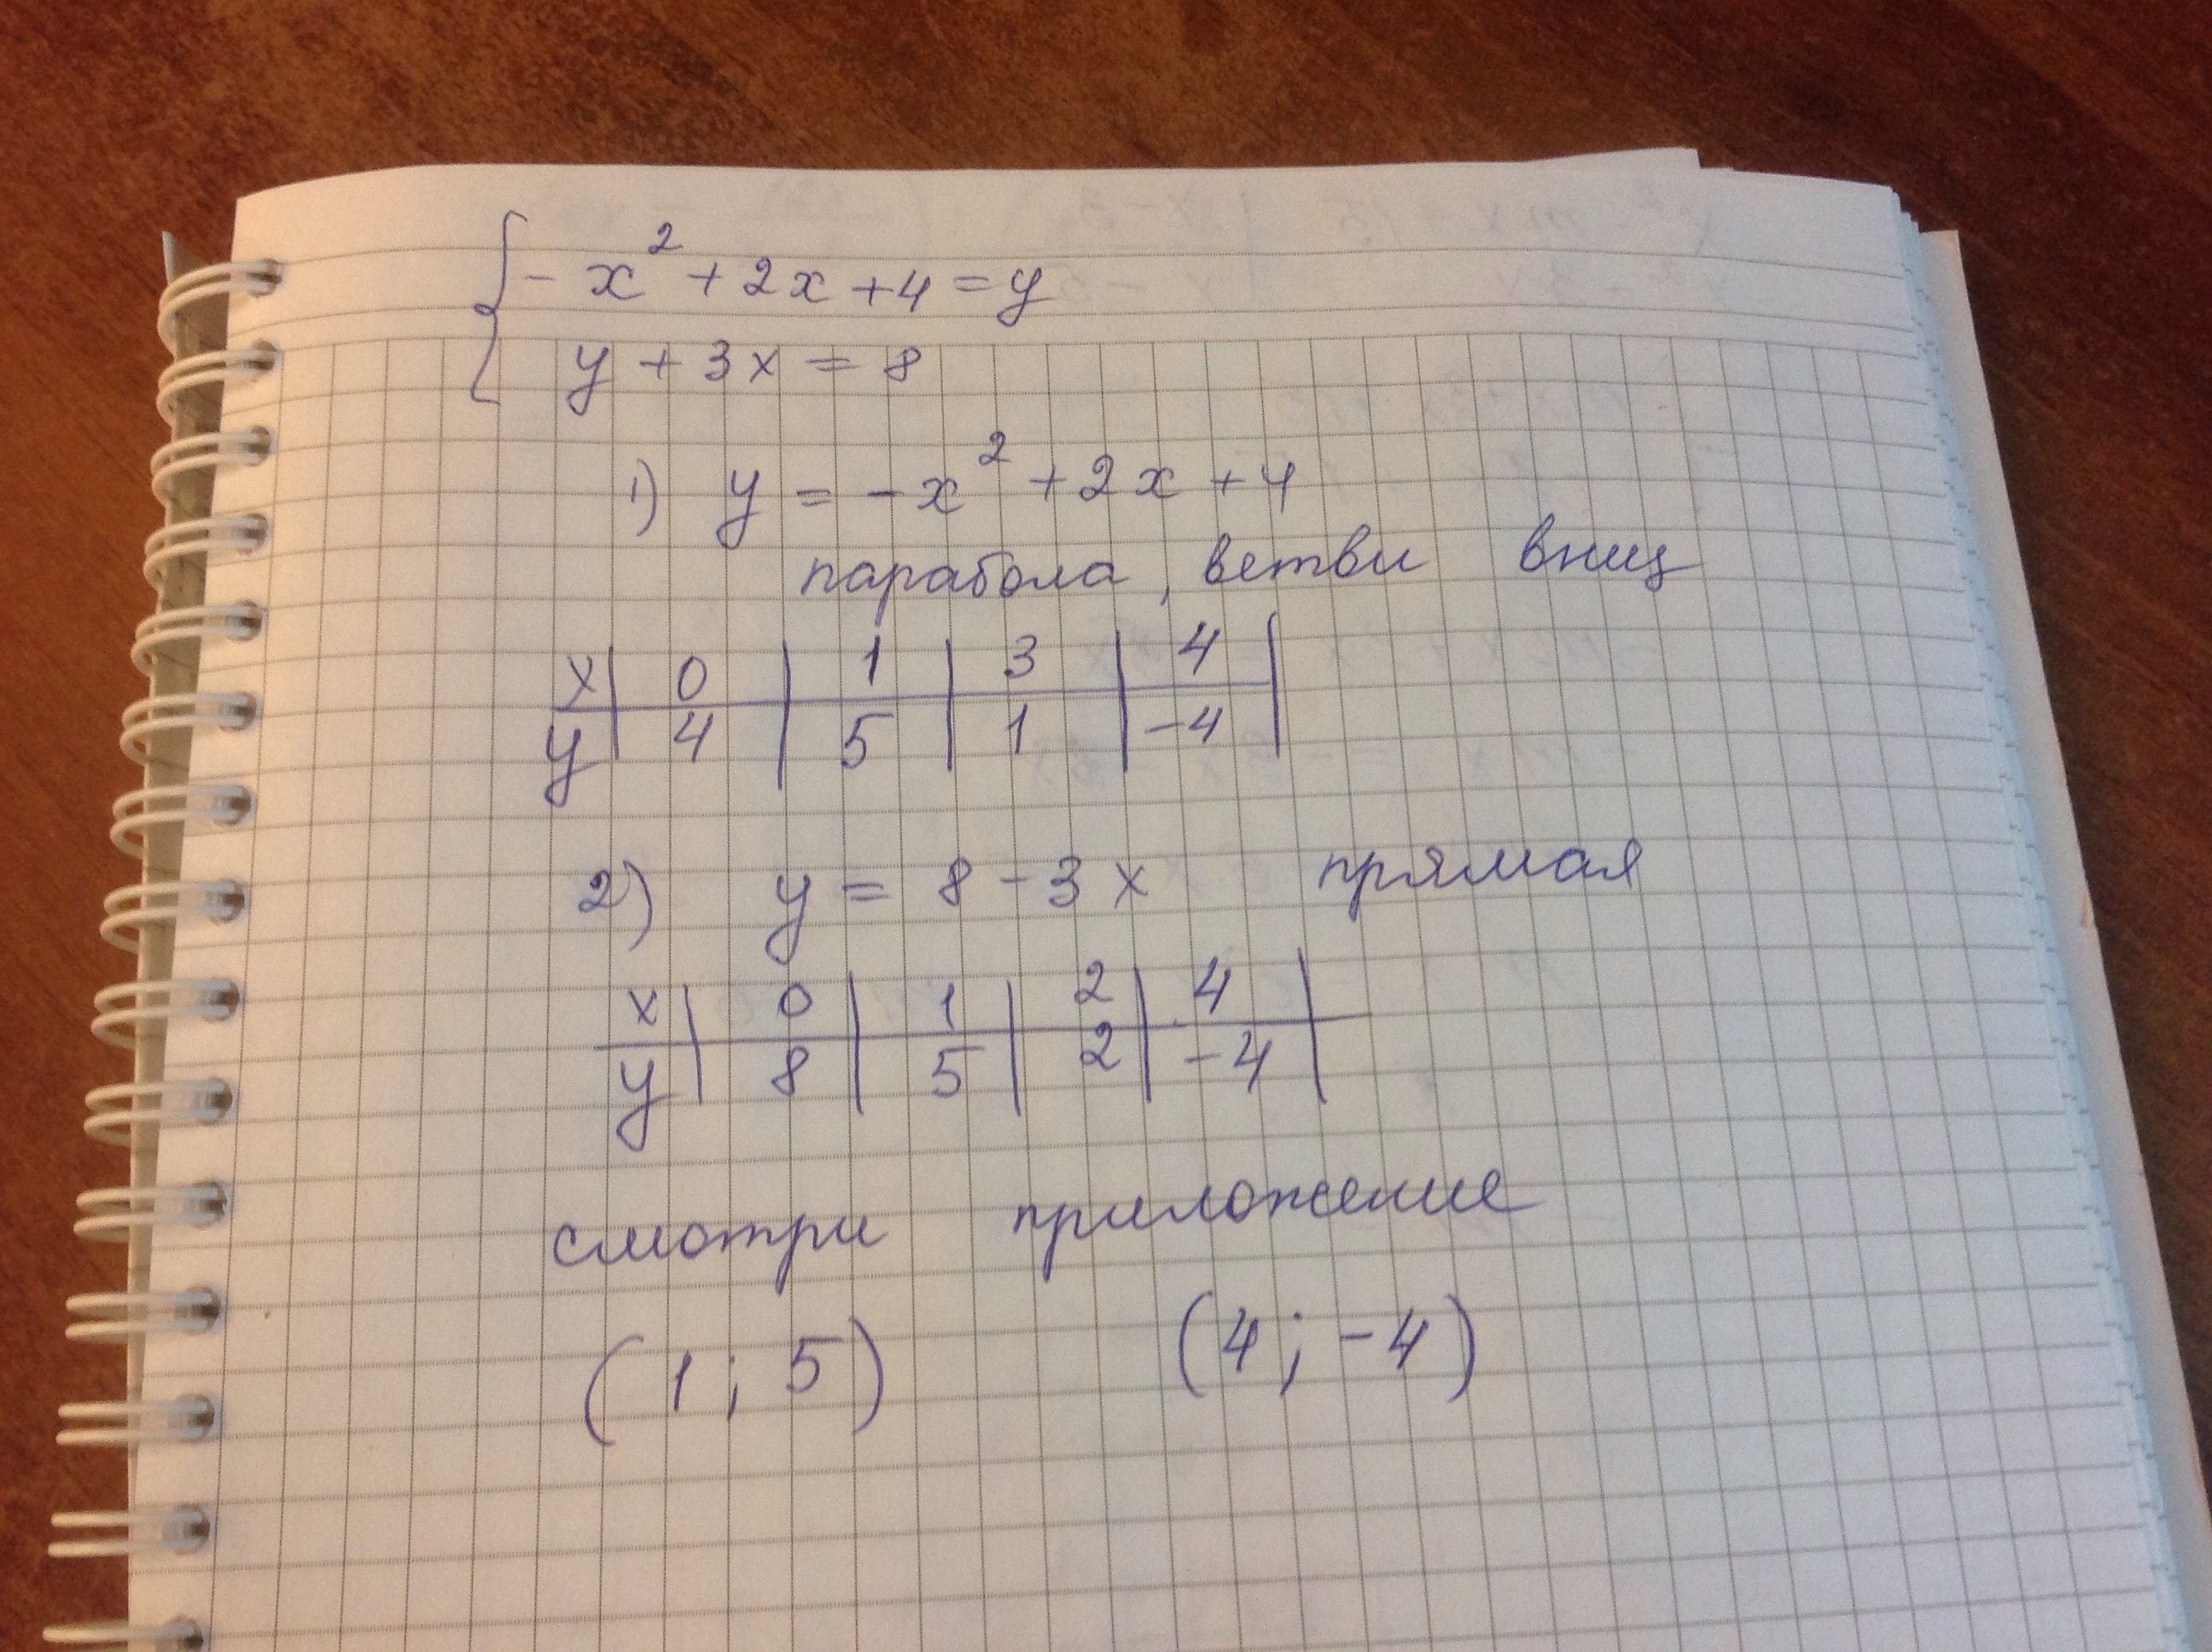 { -x² + 2x + 4 = y
y + 3x = 8
1) y = -x² + 2x + 4
парабола, ветви вниз
x | 0 | 1 | 3 | 4 |
y | 4 | 5 | 1 | -4 |
2) y = 8 - 3x прямая
x | 0 | 1 | 2 | 4 |
y | 8 | 5 | 2 | -4 |
смотри приложение
(1; 5) (4; -4)